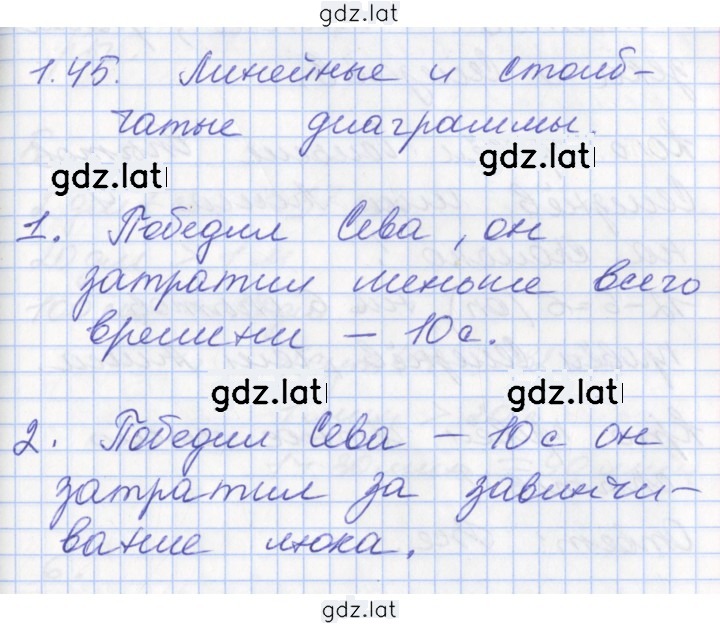 gdz.lat
1.45. Линейные и столб-
чатые диаграммы.
gdz.lat
gdz.lat
1. Победил Сева, он
затратил меньше всего
времени - 10с.
gdz.lat
gdz.lat
2. Победил Сева - 10с он
затратил за завинчи-
вание люка.
gdz.lat